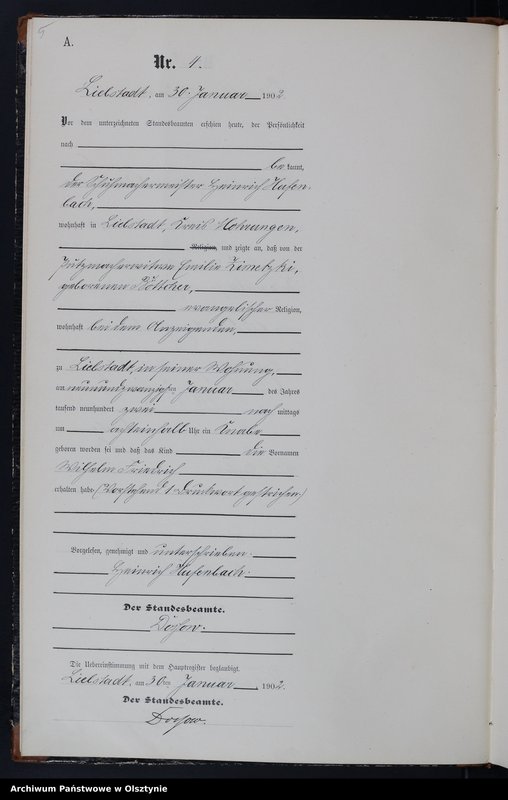 5
A.
Nr. 1.
Liebstadt, am 30. Januar 1902
Vor dem unterzeichneten Standesbeamten erschien heute, der Persönlichkeit
nach
be kannt,
der Schuhmachermeister Heinrich Hasen-
bach,
wohnhaft in Liebstadt, Kreis Mohrungen,
Religion, und zeigte an, daß von der
Putzmacherwitwe Emilie
geborenen Böttcher,
evangelischer Religion,
wohnhaft bei dem Anzeigenden,
zu Liebstadt, in seiner Wohnung,
am neunundzwanzigsten Januar des Jahres
tausend neunhundert zwei nach mittags
um achteinhalb Uhr ein Knabe
geboren worden sei und daß das Kind die Vornamen
Wilhelm Friedrich
erhalten habe. (Vorstehend 1 Druckwort gestrichen)
Vorgelesen, genehmigt und unterschrieben.
Heinrich Hasenbach.
Der Standesbeamte.
Die Uebereinstimmung mit dem Hauptregister beglaubigt.
Liebstadt, am 30ten Januar 1902.
Der Standesbeamte.
Archiwum Państwowe w Olsztynie